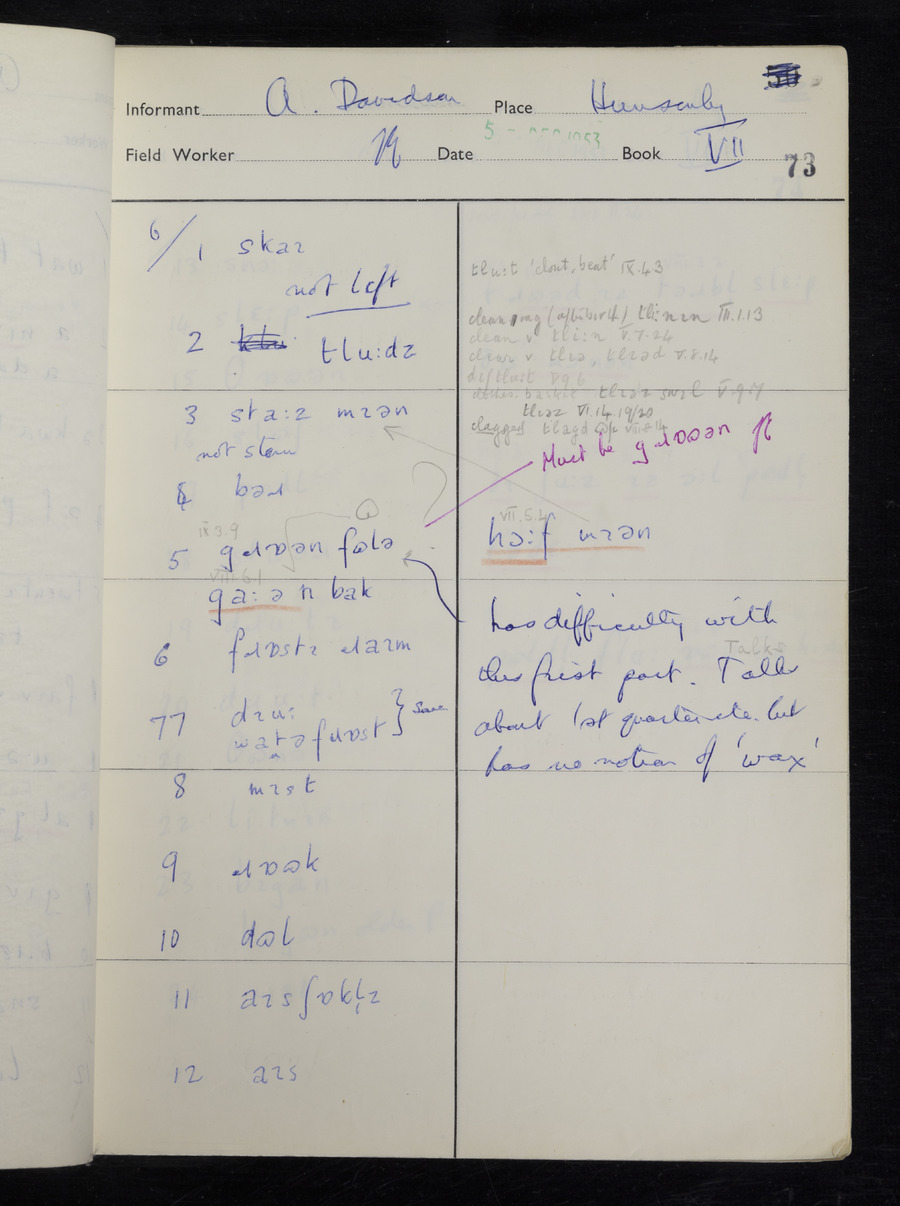 Informant A. Davidson Place Hunsonby
Field Worker Date 5 - 1953 Book VII
73
6/1 skaɪ
not left
2 tlu:dz
3 sta:z mɪən
not stern
4 bəɹ
IX 3.9
5 gɹɒən fʊlə
VIII 6.1
ga:ən bak
6 fɹɒstɪ ɹaɪm
77 dɪu:
watəfɹɒst } same
8 mɪst
9 ɹɒək
10 dʊl
11 aɪsʃɒklɪ
12 aɪs
tlu:t 'clout, beat' IX.4.3
cleansing (afterbirth) tli:nɪn III.1.13
clean v tli:n V.7.24
clear v. tlɪə, tlɪəd V.8.14
V.9.6
clothes basket tlɪəz swɪl V.9.7
tlɪəz VI.14.19/20
clagged tlagd
Must be gɹɒən
VII.5.4
hɔ:f mɪən
has difficulty with
this first part. Talks
Talks
about 1st quarter etc. but
has no notion of 'wax'